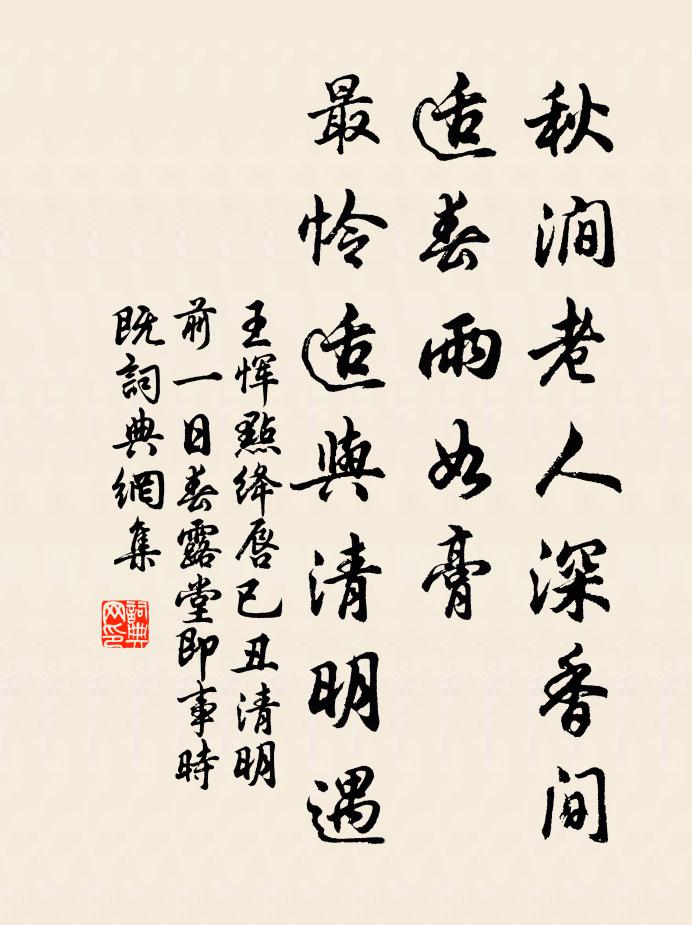 秋澗老人深香间
适春雨如膏
最怜适與清明遇
王恽點绛唇已丑清明
前一日春露堂即事時
既詞典網集
詞典網印